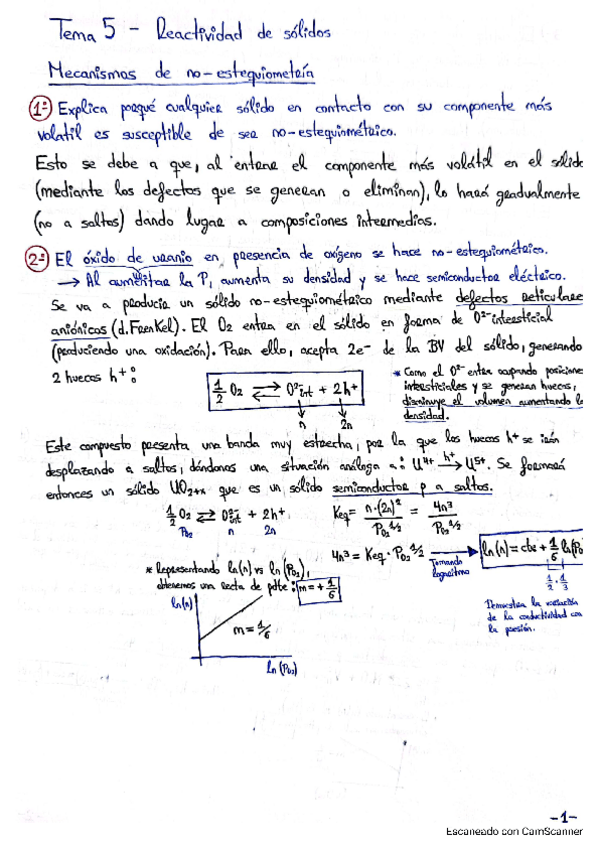 Tema 5 - Reactividad de sólidos
Mecanismos de no-estequiometría
1º Explica porqué cualquier sólido en contacto con su componente más
volatil es susceptible de ser no-estequiométrico.
Esto se debe a que, al entrar el componente más volátil en el sólido
(mediante los defectos que se generan o eliminan), lo hará gradualmente
(no a saltos) dando lugar a composiciones intermedias.
2º El óxido de uranio en presencia de oxígeno se hace no-estequiométrico.
→ Al aumentar la P, aumenta su densidad y se hace semiconductor eléctrico.
Se va a producir un sólido no-estequiométrico mediante defectos reticulare
aniónicos (d. Frenkel). El O2 entra en el sólido en forma de O²⁻intersticial
(produciendo una oxidación). Para ello, acepta 2e⁻ de la BV del sólido, generando
2 huecos h⁺:
1/2 O2 ⇄ O²⁻int + 2h⁺
n 2n
* Como el O²⁻ entra ocupando posicione
intersticiales y se generan huecos,
disminuye el volumen aumentando la
densidad.
Este compuesto presenta una banda muy estrecha, por la que los huecos h⁺ se irán
desplazando a saltos, dándonos una situación análoga a: U⁴⁺ —h⁺→ U⁵⁺. Se formará
entonces un sólido UO2+x que es un sólido semiconductor p a saltos.
1/2 O2 ⇄ O²⁻int + 2h⁺ Keq = n·(2n)² / PO2^1/2 = 4n³ / PO2^1/2
PO2 n 2n
4n³ = Keq · PO2^1/2 → Tomando logaritmo ln(n) = cte + 1/6 ln(PO
1/2 · 1/3
* Representando ln(n) vs ln(PO2),
obtenemos una recta de pdte: m = + 1/6
Demuestra la variación
de la conductividad con
la presión.
ln(n)
m = 1/6
ln(PO2)
-1-
Escaneado con CamScanner